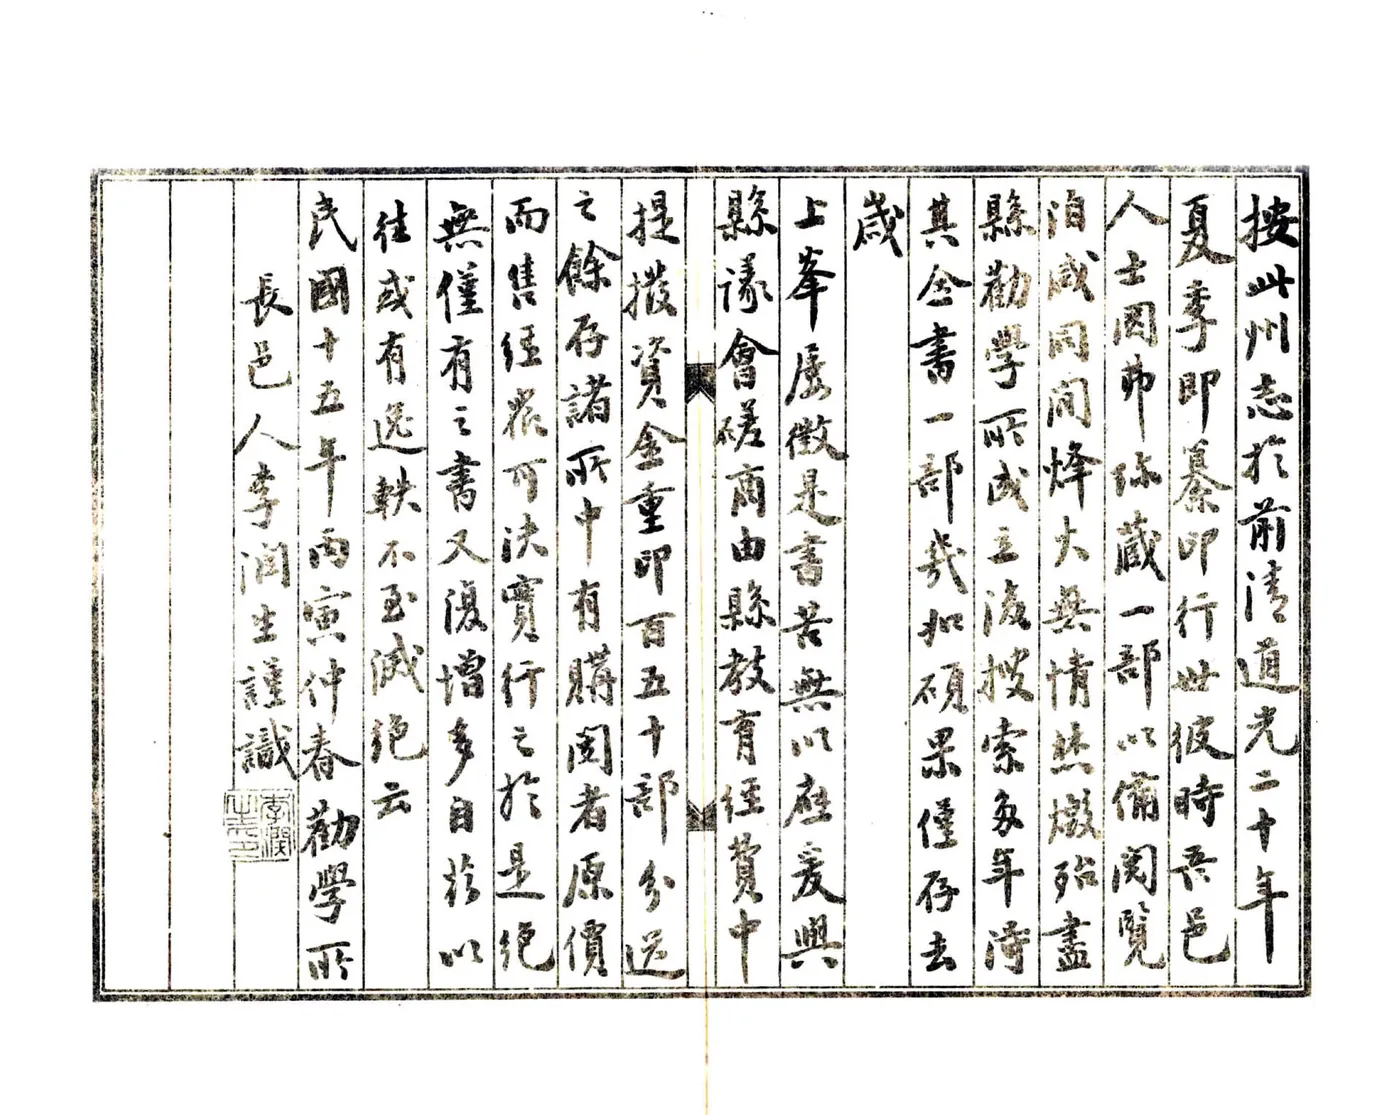 按此州志於前清道光二十年
夏季即纂印行世彼時吾邑
人士因弗珎藏一部以備閱覽
洎咸同間烽火無情悉燬殆盡
縣勸學所成立後搜索多年得
其全書一部幾如碩果僅存去
歲
上峯屢徵是書苦無以應爰與
縣議會磋商由縣教育經費中
提撥資金重印百五十部分送
之餘存諸所中有購閱者原價
而售經衆可决實行之於是絕
無僅有之書又復增多自茲以
往或有逸軼不至滅絕云
民國十五年丙寅仲春勸學所
長邑人李潤生謹識
李潤生印